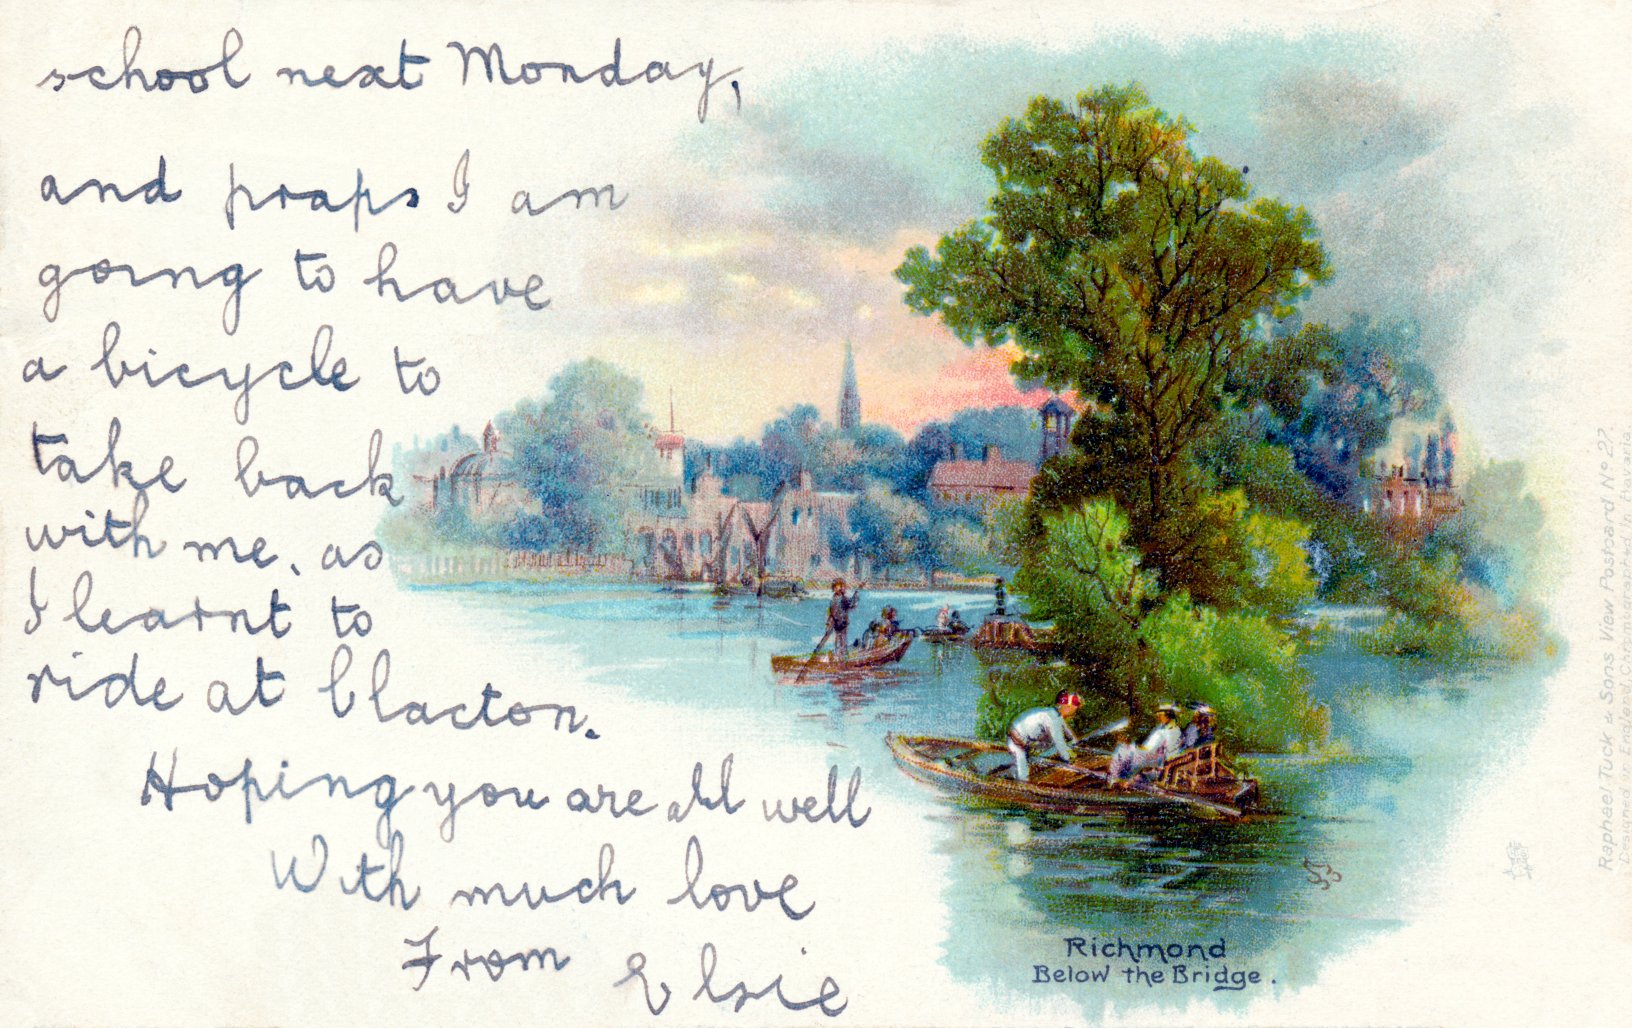 school next Monday,
and praps I am
going to have
a bicycle to
take back
with me. as
I learnt to
ride at Clacton.
Hoping you are all well
With much love
From Elsie
Richmond
Below the Bridge.
Raphael Tuck & Sons View Postcard Nº 27.
Designed in England, Chromographed in Bavaria.